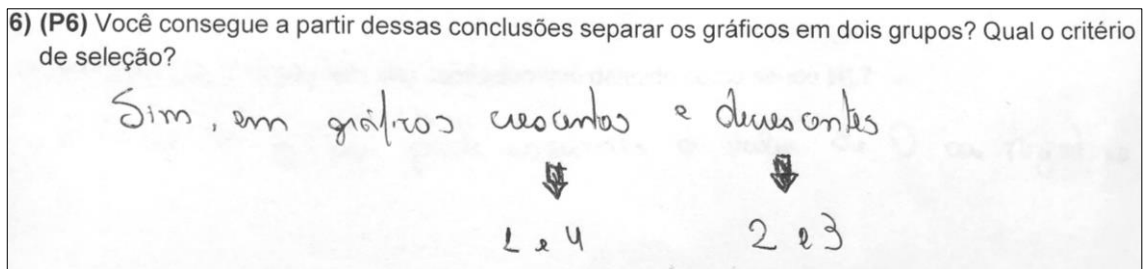 6) (P6) Você consegue a partir dessas conclusões separar os gráficos em dois grupos? Qual o critério
de seleção?
Sim, em gráficos crescentes e decrescentes
1 e 4 2 e 3